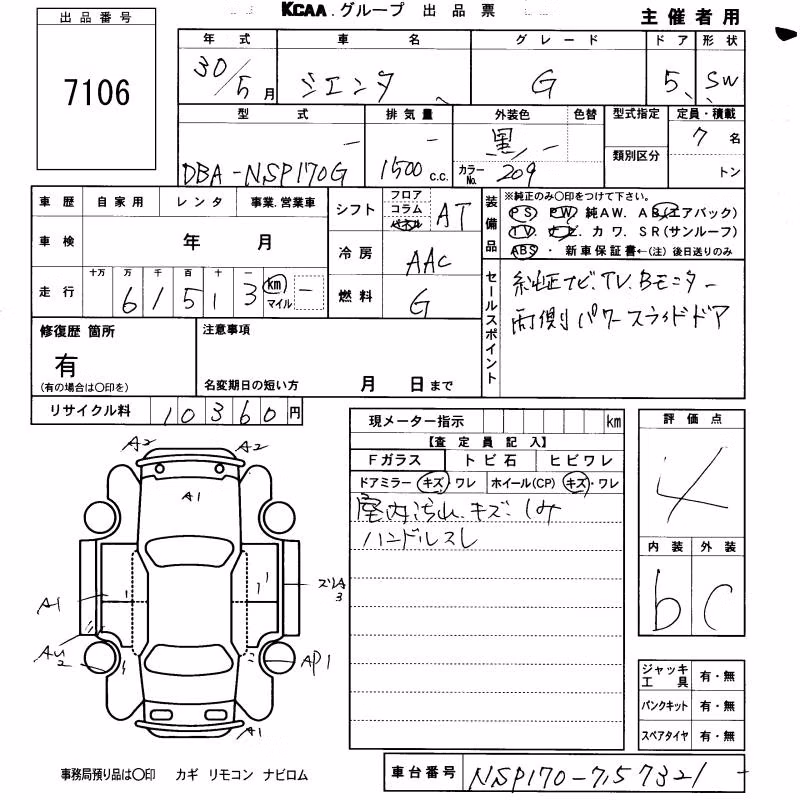 KCAA.グループ 出品票
主催者用
出品番号
7106
年式 車名 グレード ドア 形状
30/5月 シエンタ G 5 SW
型式 排気量 外装色 色替 型式指定 定員・積載
DBA-NSP170G 1500c.c. 黒 7名
カラーNo. 209 類別区分 トン
車歴 自家用 レンタ 事業.営業車
車検 年 月
走行 十万 万 千 百 十 一
6 1 5 1 3 km マイル
シフト フロア コラム パネル AT
冷房 AAC
燃料 G
装備品
※純正のみ〇印をつけて下さい。
PS PW 純AW. AB(エアバック)
TV. ナビ. カワ. SR(サンルーフ)
ABS ・ 新車保証書←(注)後日送りのみ
セールスポイント
純正ナビ.TV.Bモニター
両側パワースライドドア
修復歴 箇所
有
(有の場合は〇印を)
注意事項
名変期日の短い方 月 日まで
リサイクル料 10360円
現メーター指示 km
【査定員記入】
Fガラス トビ石 ヒビワレ
ドアミラー キズ・ワレ ホイール(CP) キズ・ワレ
室内汚れ.キズ.シミ
ハンドルスレ
評価点
4
内装 外装
b C
A2 A2
A1
A1
AU2
ズレA3
AP1
A1
ジャッキ工具 有・無
パンクキット 有・無
スペアタイヤ 有・無
事務局預り品は〇印 カギ リモコン ナビロム
車台番号 NSP170-7157321